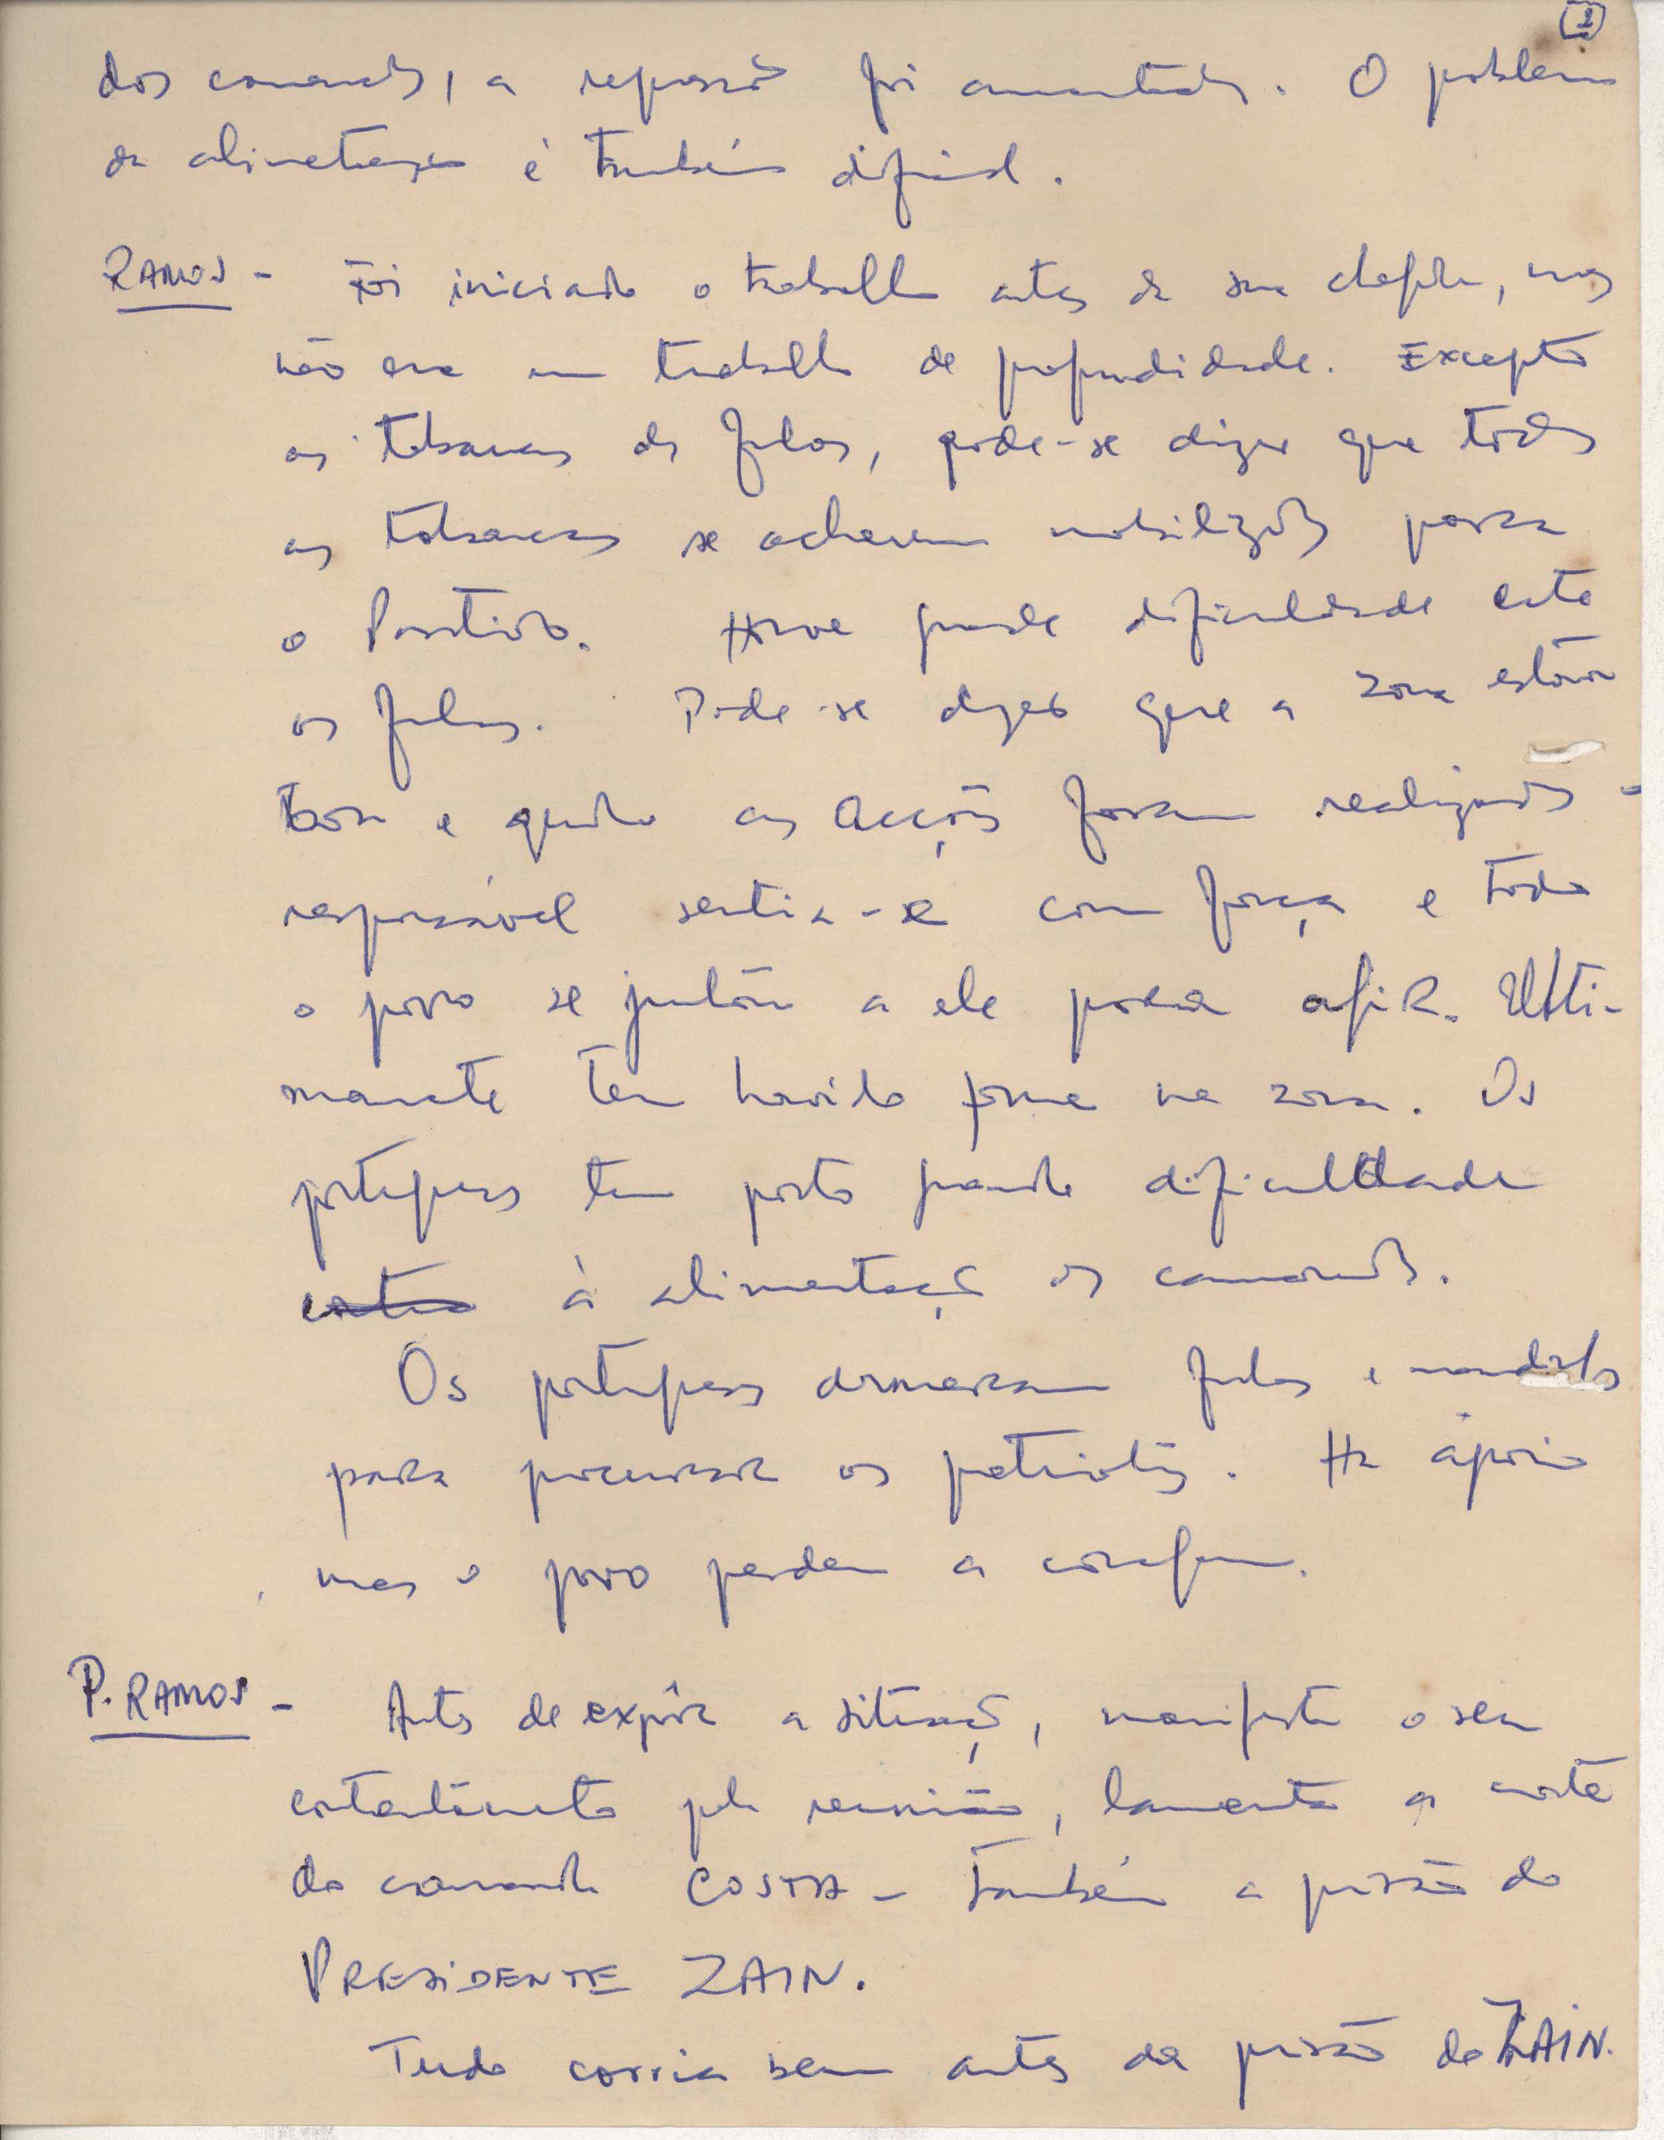 2
dos camaradas, a repressão foi aumentada. O problema
da alimentação é também difícil.
RAMOS - Foi iniciado o trabalho antes da sua chegada, mas
não era um trabalho de profundidade. Excepto
as tabancas de fulas, pode-se dizer que todas
as tabancas se acharam mobilizadas para
o Partido. Houve grande dificuldade entre
os fulas. Pode-se dizer que a zona estava
boa e quando as acções foram realizadas -
responsável sentia-se com força e todo
o povo se juntou a ele para agir. Ulti-
mamente tem havido fome na zona. Os
portugueses têm posto grande dificuldade
à alimentação os camaradas.
Os portugueses armaram fulas e mandados
para procurar os patriotas. Há apoio
mas o povo perdeu a coragem.
P. RAMOS - Antes de expôr a situação, manifesta o seu
contentamento pela reunião, lamenta a morte
do camarada COSTA - Também a prisão do
PRESIDENTE ZAIN.
Tudo corria bem antes da prisão do ZAIN.